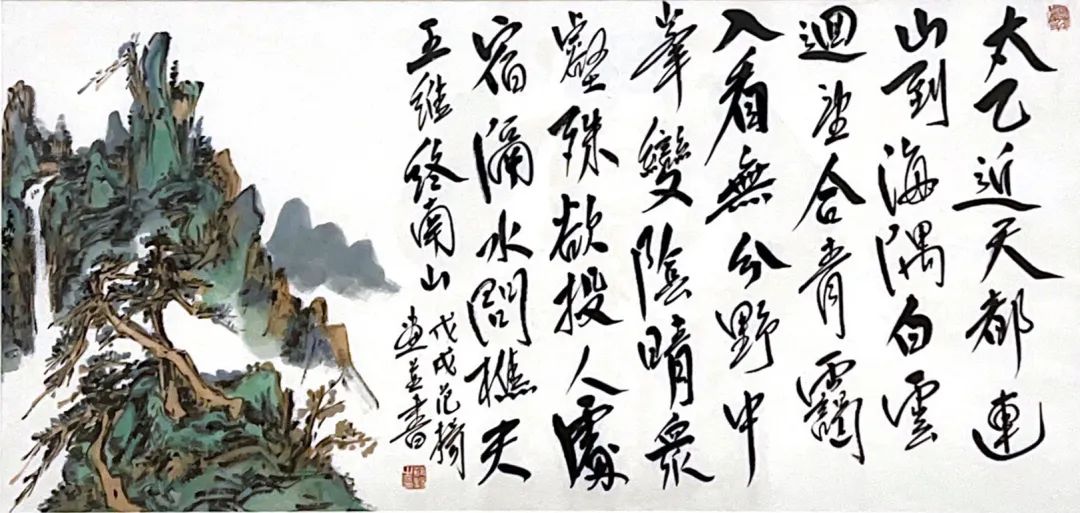 太乙近天都連
山到海隅白雲
迴望合青靄
入看無分野中
峯變陰晴衆
壑殊欲投人處
宿隔水問樵夫
王維終南山
戊戌范
畫並書